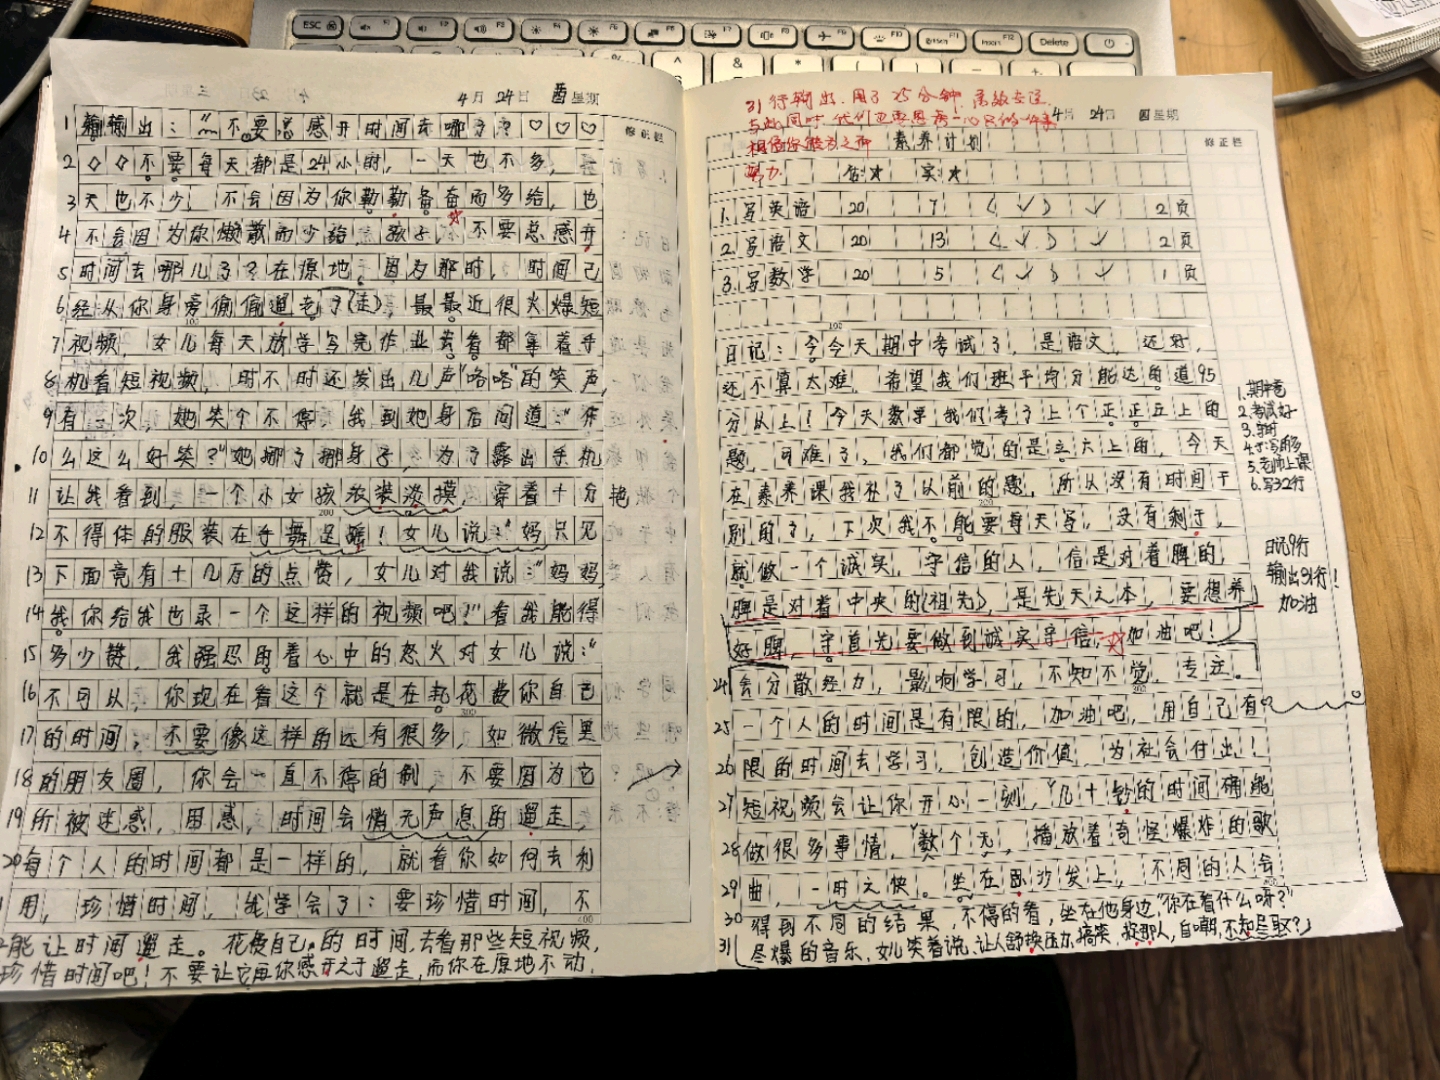 4月24日 酉星期
1 输出:"不要总感开时间去哪了?♡♡♡
2 ◇◇不要每天都是24小时,一天也不多,
3 天也不少,不会因为你勤勤奋奋而多给,也
4 不会因为你懒散而少给 孩子,不要总感开
5 时间去哪儿了?在原地,因为那时,时间已
6 经从你身旁偷偷遛走了(走),最最近很火爆短
7 视频,女儿每天放学写完作业 都拿着手
8 机看短视频,时不时还发出几声"咯咯"的笑声,
9 有一次,她笑个不停,我到她身后问道:"作
10 么这么好笑?"她挪了挪身子,为了露出手机
11 让我看到,一个小女孩浓装淡摸,穿着十分 艳
12 不得体的服装在手舞足蹈!女儿说:"妈只见
13 下面竟有十几万的点赞,女儿对我说:"妈妈
14 我你给我也录一个这样的视频吧?"看我能得
15 多少赞,我强忍的着心中的怒火对女儿说:"
16 不可以,你现在看这个就是在 花费你自己
17 的时间,不要像这样的还有狠多,如微信里
18 的朋友圈,你会一直不停的刷,不要因为它
19 所被迷惑,用惑,时间会悄无声息的遛走,
20 每个人的时间都是一样的,就看你如何去利
用,珍惜时间,我学会了:要珍惜时间,不
能让时间遛走。花费自己的时间,去看那些短视频,
珍惜时间吧!不要让它再你感开之于遛走,而你在原地不动,
31行输出,用了25分钟,高效专注
4月24日 酉星期
相信你 素养计划
努力 估时 实时
1.写英语 20 7 (✓) ✓ 2页
2.写语文 20 13 (✓) ✓ 2页
3.写数学 20 5 (✓) ✓ 1页
日记:今今天期中考试了,是语文,还好,
还不算太难,希望我们班平均分能达的道95
分从上!今天数学我们考了上个正正五上的
题,可难了,我们都觉的是五六上的,今天
在素养课我补了以前的题,所从没有时间干
别的了,下次我不能要每天写,没有剩于,
就做一个诚实,守信的人,信是对着脾的
脾是对着中央的(祖先),是先天之本,要想养
好脾,守首先要做到诚实守信,加油吧!
24 会分散经力,影响学习,不知不觉,专注。
25 一个人的时间是有限的,加油吧,用自己有
26 限的时间去学习,创造价值,为社会付出!
27 短视频会让你开心一刻,"几十秒的时间确能
28 做很多事情,数个无,播放着奇怪爆炸的歌
29 曲,一时之快。坐在 沙发上,不同的人会
30 得到不同的结果,不停的看,坐在他身边,"你在看什么呀?"
31 尽爆的音乐,女儿笑着说,让人舒换压力,搞笑, 那人,自嘲,不知尽取?
修正栏
1.期中考
2.考试好
3.
4.
5.老师上课
6.写32行
日记9行
输出31行!
加油